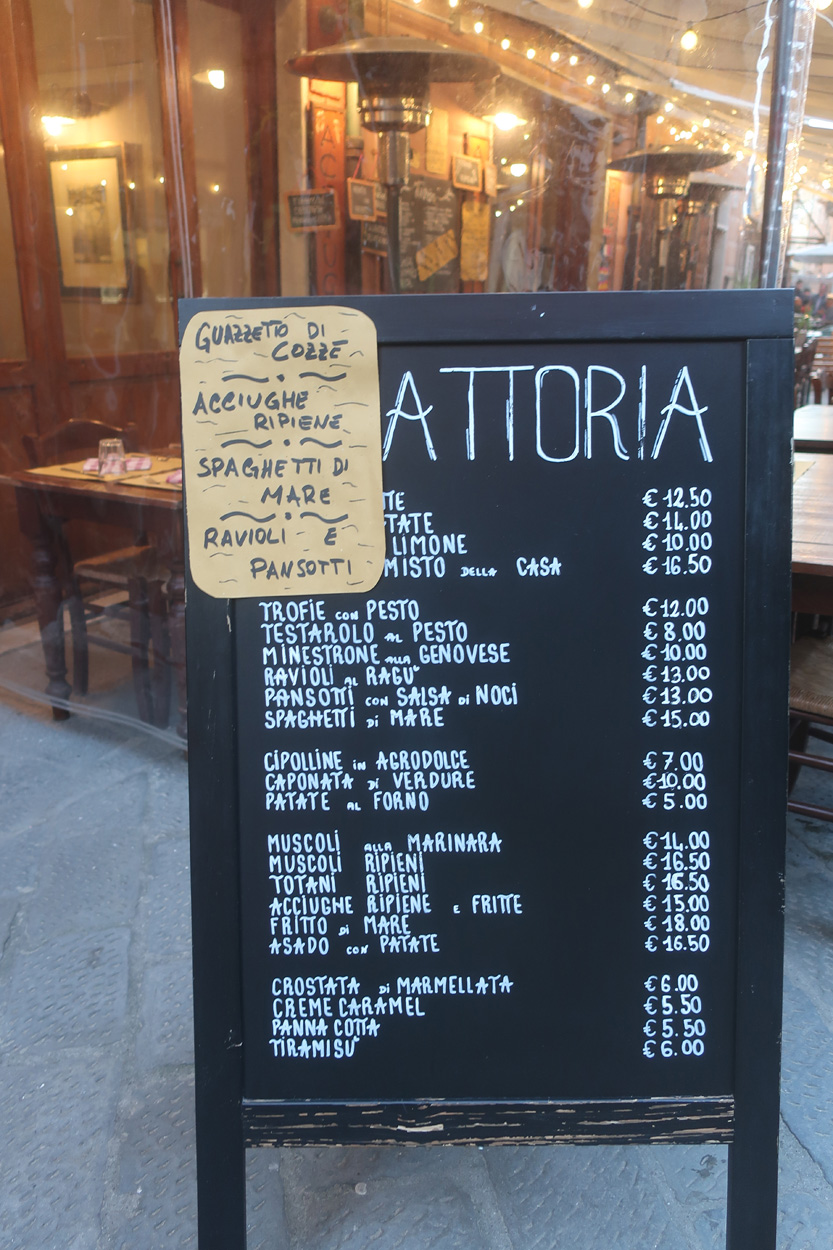 GUAZZETTO DI
COZZE
ACCIUGHE
RIPIENE
SPAGHETTI DI
MARE
RAVIOLI E
PANSOTTI
ATTORIA
TE € 12.50
TATE € 14.00
LIMONE € 10.00
MISTO DELLA CASA € 16.50
TROFIE CON PESTO € 12.00
TESTAROLO AL PESTO € 8.00
MINESTRONE ALLA GENOVESE € 10.00
RAVIOLI AL RAGU' € 13.00
PANSOTTI CON SALSA DI NOCI € 13.00
SPAGHETTI DI MARE € 15.00
CIPOLLINE IN AGRODOLCE € 7.00
CAPONATA DI VERDURE € 10.00
PATATE AL FORNO € 5.00
MUSCOLI ALLA MARINARA € 14.00
MUSCOLI RIPIENI € 16.50
TOTANI RIPIENI € 16.50
ACCIUGHE RIPIENE E FRITTE € 15.00
FRITTO DI MARE € 18.00
ASADO CON PATATE € 16.50
CROSTATA DI MARMELLATA € 6.00
CREME CARAMEL € 5.50
PANNA COTTA € 5.50
TIRAMISU' € 6.00